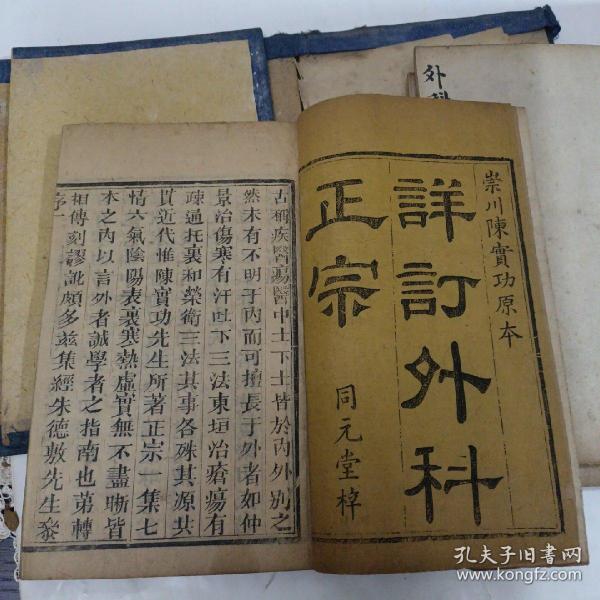 崇川陳實功原本
詳訂外科
正宗
同元堂梓
古稱疾醫瘍醫中士下士皆於內外別之
然未有不明于內而可擅長于外者如仲
景治傷寒有汗吐下三法東垣治瘡瘍有
疎通托裏和榮衛三法其事各殊其源共
貫近代惟陳實功先生所著正宗一集七
情六氣陰陽表裏寒熱虛實無不盡晰皆
本之內以言外者誠學者之指南也第轉
相傳刻謬訛頗多玆集經朱德敷先生叅
序一
外科
孔夫子旧书网
www.kongfz.com